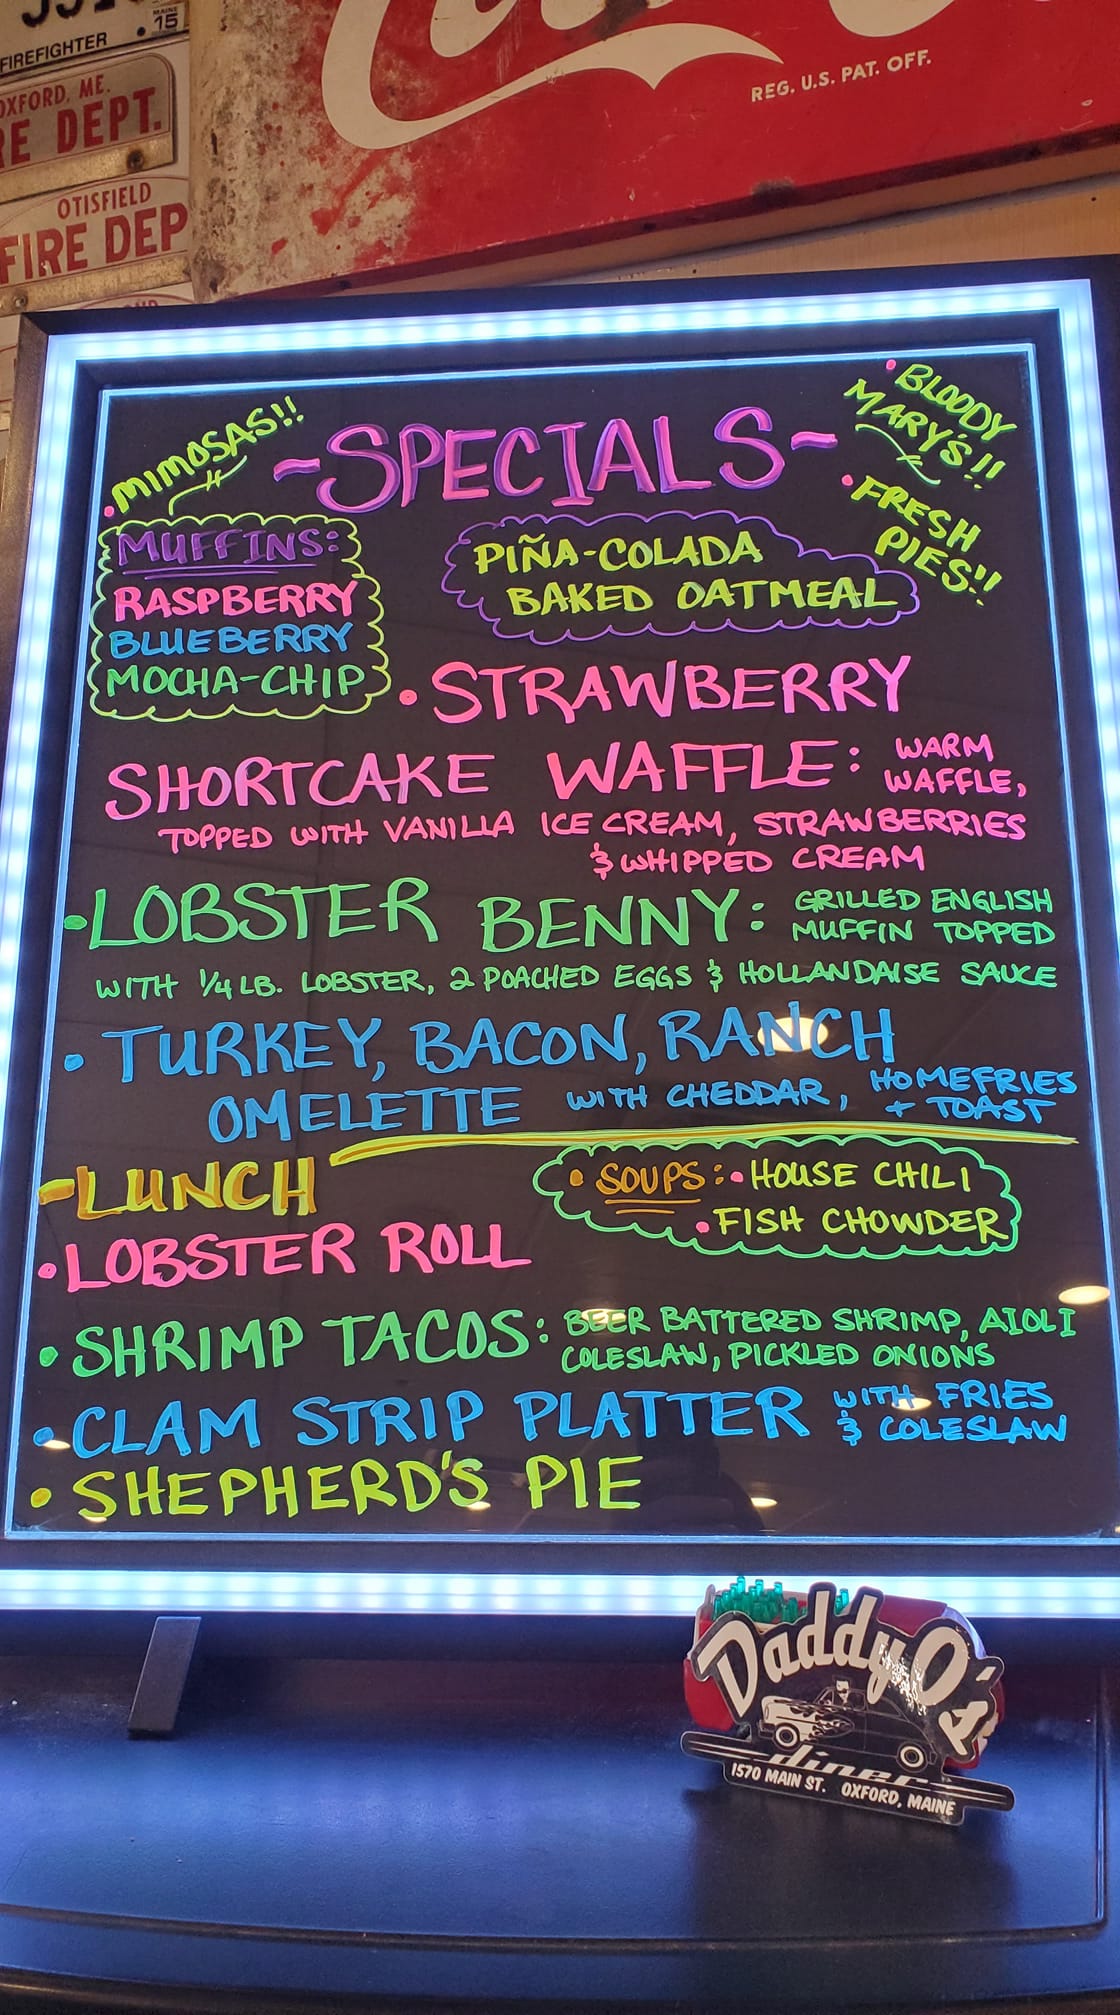 MAINE
15
FIREFIGHTER
OXFORD, ME.
RE DEPT.
OTISFIELD
FIRE DEP
REG. U.S. PAT. OFF.
• MIMOSAS!!
-SPECIALS-
• BLOODY
MARY'S!!
• FRESH
PIES!!
MUFFINS:
RASPBERRY
BLUEBERRY
MOCHA-CHIP
PIÑA-COLADA
BAKED OATMEAL
• STRAWBERRY
SHORTCAKE WAFFLE: WARM
WAFFLE,
TOPPED WITH VANILLA ICE CREAM, STRAWBERRIES
& WHIPPED CREAM
• LOBSTER BENNY: GRILLED ENGLISH
MUFFIN TOPPED
WITH 1/4 LB. LOBSTER, 2 POACHED EGGS & HOLLANDAISE SAUCE
• TURKEY, BACON, RANCH
OMELETTE WITH CHEDDAR, HOMEFRIES
+ TOAST
-LUNCH
• SOUPS: • HOUSE CHILI
• FISH CHOWDER
• LOBSTER ROLL
• SHRIMP TACOS: BEER BATTERED SHRIMP, AIOLI
COLESLAW, PICKLED ONIONS
• CLAM STRIP PLATTER WITH FRIES
& COLESLAW
• SHEPHERD'S PIE
Daddy O's
diner
1570 MAIN ST. OXFORD, MAINE